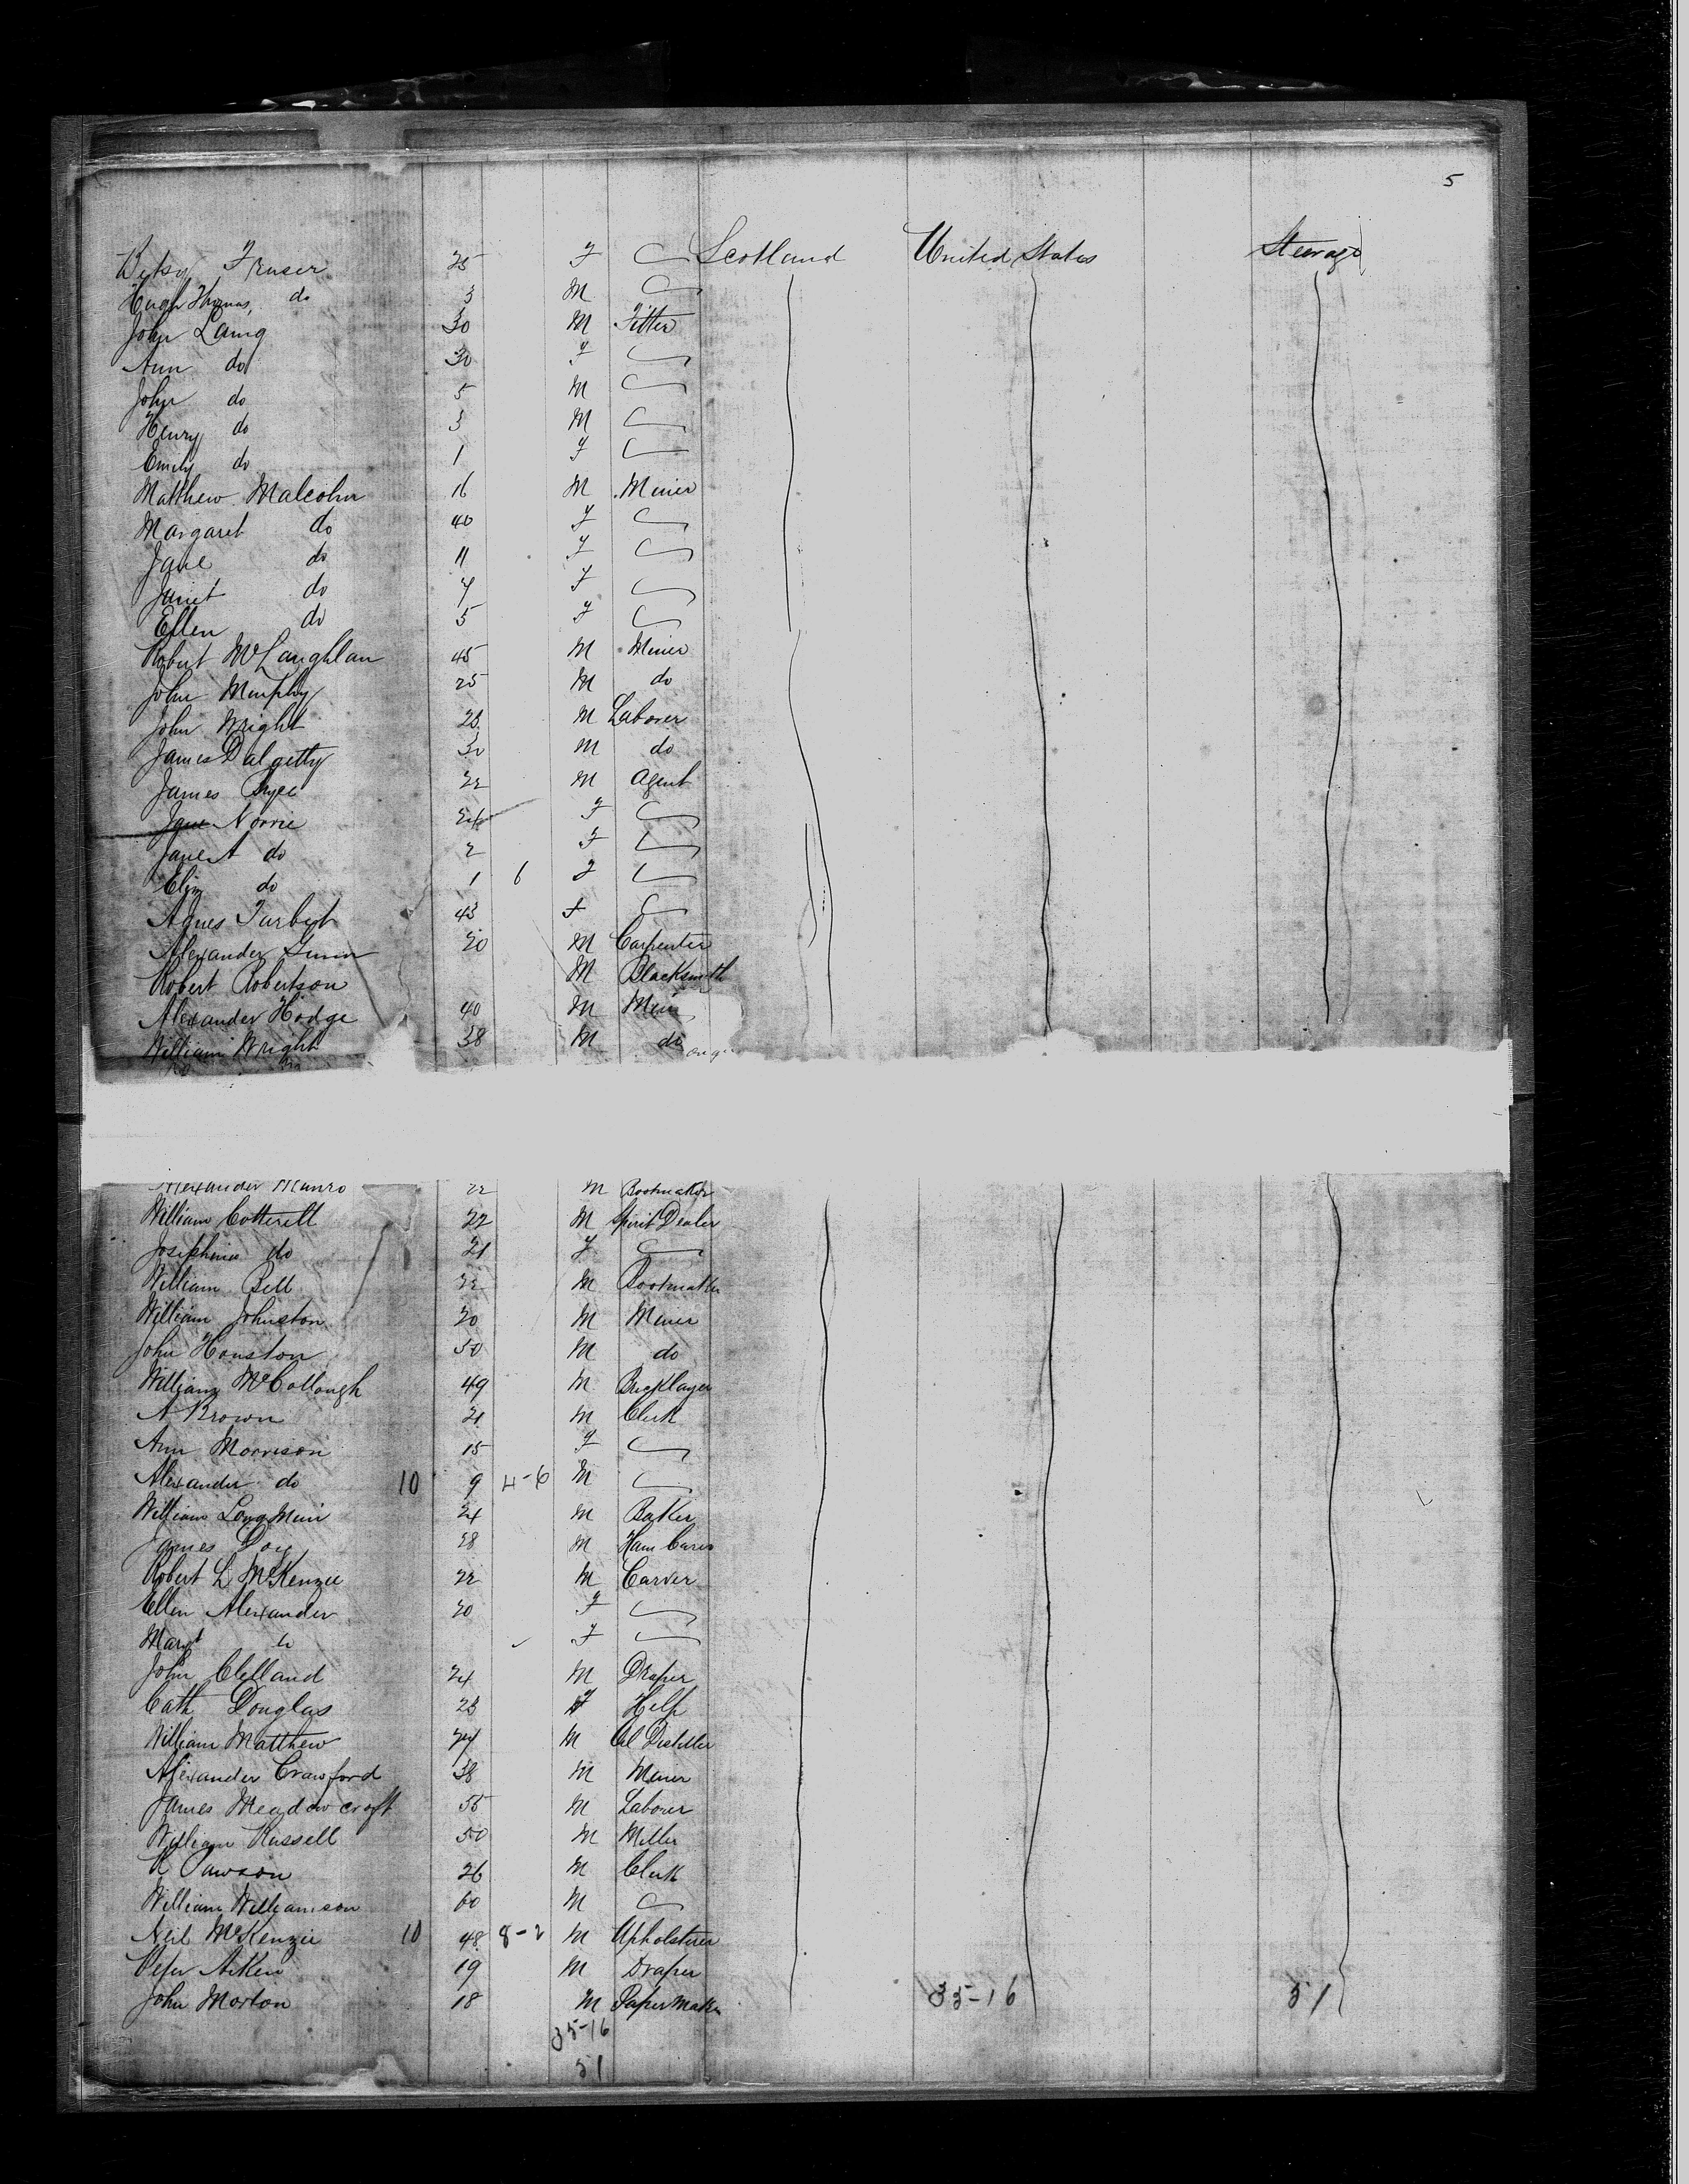 5
Betsy Fraser 25 F Scotland United States Steerage
Hugh Thomas, do 3 M
John Laing 30 M Fitter
Ann do 30 F
John do 5 M
Henry do 3 M
Emily do 1 F
Matthew Malcolm 16 M Miner
Margaret do 40 F
Jane do 11 F
Janet do 7 F
Ellen do 5 F
Robert McLaughlan 45 M Miner
John Murphy 25 M do
John Wright 28 M Laborer
James Dalgetty 30 M do
James Bryce 22 M Agent
Jane Norrie 24 F
Jane A do 2 F
Eliz do 1 6 F
Agnes Turbyt 43 F
Alexander Gunn 20 M Carpenter
Robert Robertson M Blacksmith
Alexander Hodge 40 M Miner
William Wright 38 M do
Alexander Munro 22 M Bootmaker
William Cotterell 22 M Spirit Dealer
Josephine do 21 F
William Bell 22 M Bootmaker
William Johnston 20 M Miner
John Houston 50 M do
William McCollough 49 M Bricklayer
A Brown 21 M Clerk
Ann Morrison 15 F
Alexander do 10 9 4-6 M
William Longmuir 24 M Baker
James 28 M Ham Curer
Robert L McKenzie 22 M Carver
Ellen Alexander 20 F
Margt do F
John Clelland 24 M Draper
Cath Douglas 23 F Help
William Matthew 24 M Oil Distiller
Alexander Crawford 38 M Miner
James Meadowcroft 55 M Laborer
William Russell 50 M Miller
R Pawson 26 M Clerk
William Williamson 60 M
Neil McKenzie 10 48 8-2 M Upholsterer
Peter Aitken 19 M Draper
John Morton 18 M Paper Maker 35-16 51
35-16
51